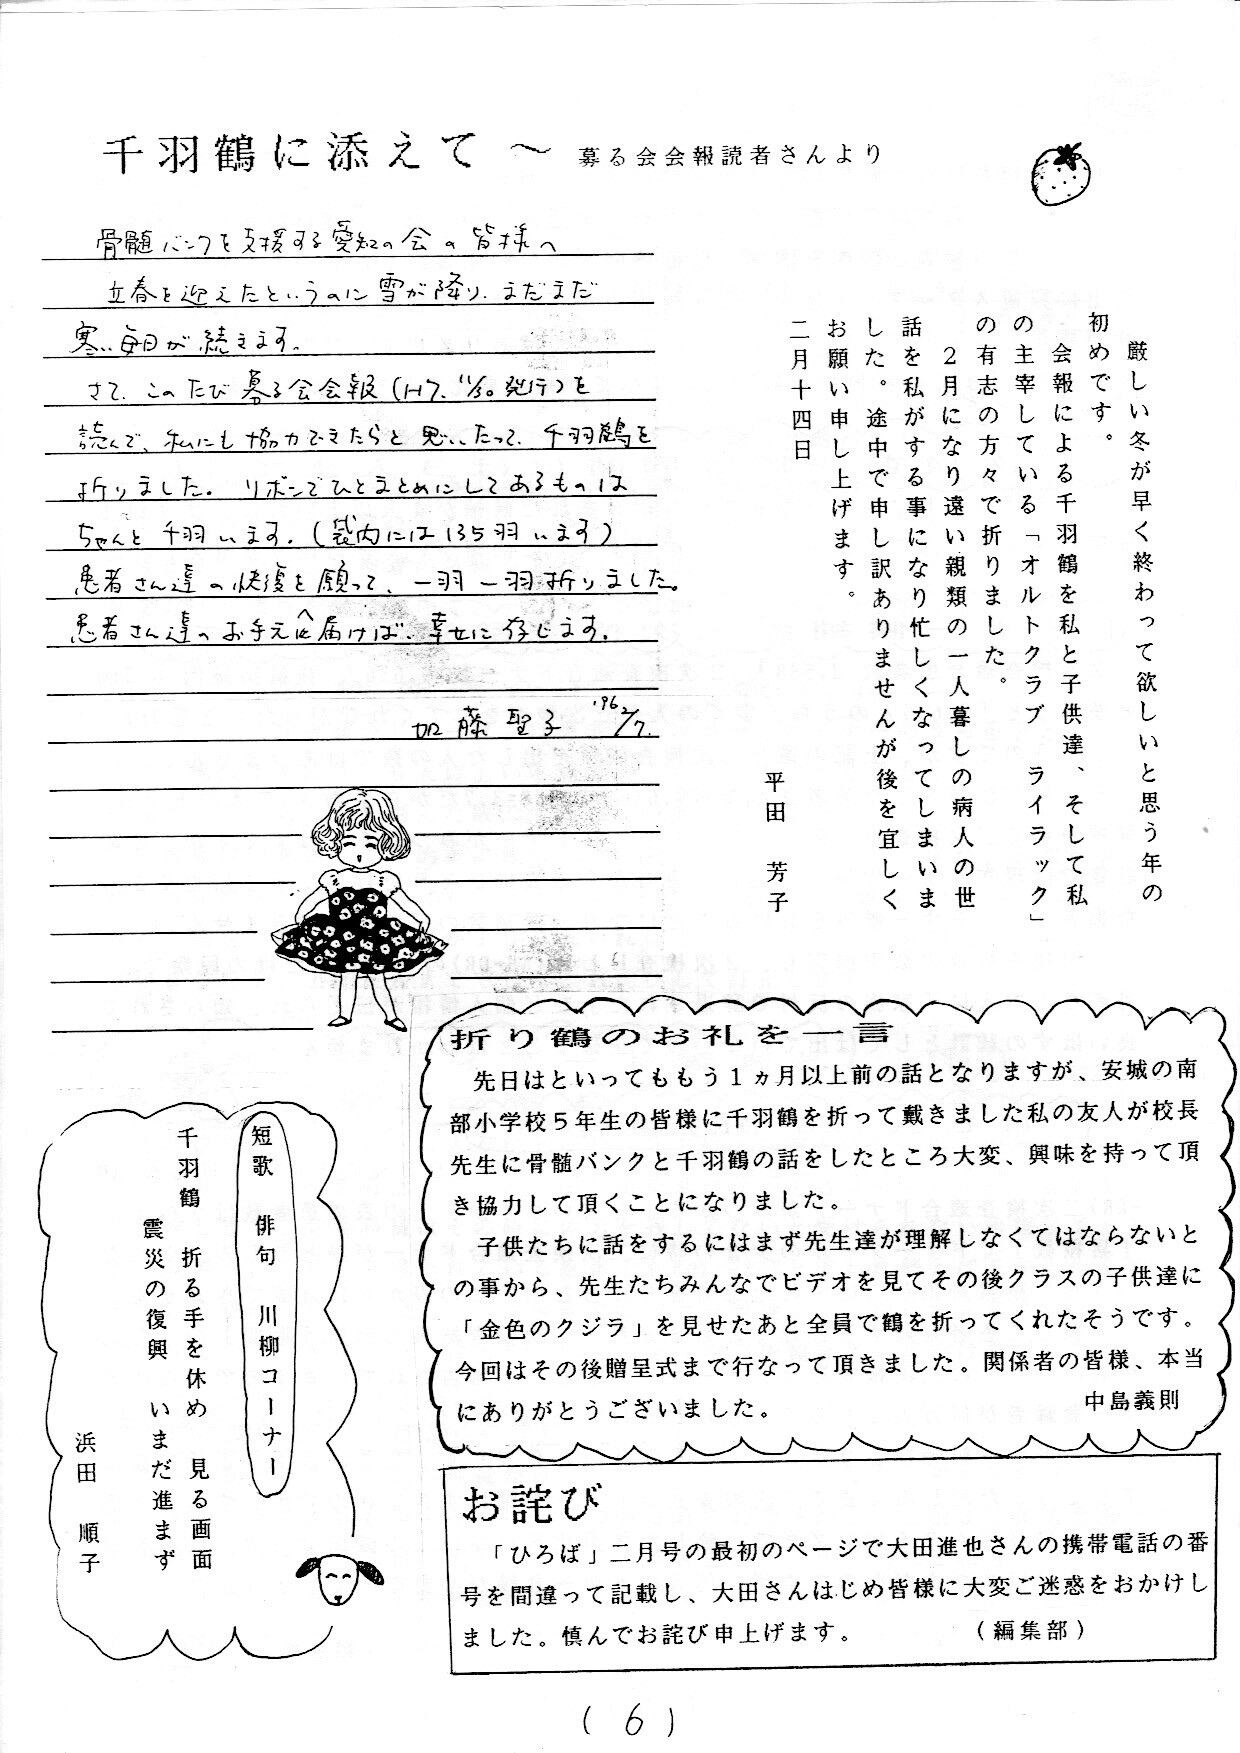 千羽鶴に添えて ～ 募る会会報読者さんより
骨髄バンクを支援する愛知の会の皆様へ
立春を迎えたというのに雪が降り、まだまだ
寒い毎日が続きます。
さて、このたび募る会会報(H7. 11/30発行)を
読んで、私にも協力できたらと思いたって、千羽鶴を
折りました。リボンでひとまとめにしてあるものは
ちゃんと千羽います。(袋内には135羽います)
患者さん達の快復を願って、一羽一羽折りました。
患者さん達のお手元へ届けば、幸せに存じます。
加藤聖子 '96 2/7.
厳しい冬が早く終わって欲しいと思う年の
初めです。
会報による千羽鶴を私と子供達、そして私
の主宰している「オルトクラブ ライラック」
の有志の方々で折りました。
２月になり遠い親類の一人暮しの病人の世
話を私がする事になり忙しくなってしまいま
した。途中で申し訳ありませんが後を宜しく
お願い申し上げます。
二月十四日
平田 芳子
折り鶴のお礼を一言
先日はといってももう１ヵ月以上前の話となりますが、安城の南
部小学校５年生の皆様に千羽鶴を折って戴きました私の友人が校長
先生に骨髄バンクと千羽鶴の話をしたところ大変、興味を持って頂
き協力して頂くことになりました。
子供たちに話をするにはまず先生達が理解しなくてはならないと
の事から、先生たちみんなでビデオを見てその後クラスの子供達に
「金色のクジラ」を見せたあと全員で鶴を折ってくれたそうです。
今回はその後贈呈式まで行なって頂きました。関係者の皆様、本当
にありがとうございました。 中島義則
短歌 俳句 川柳コーナー
千羽鶴 折る手を休め 見る画面
震災の復興 いまだ進まず
浜田 順子
お詫び
「ひろば」二月号の最初のページで大田進也さんの携帯電話の番
号を間違って記載し、大田さんはじめ皆様に大変ご迷惑をおかけし
ました。慎んでお詫び申上げます。 (編集部)
(6)